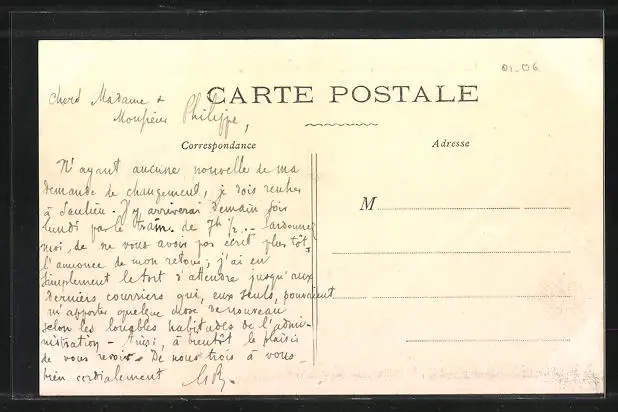 01-06
CARTE POSTALE
Correspondance
Adresse
M
Cherd Madame &
Monsieur Philippe,
N'ayant aucune nouvelle de ma
demande de changement, je dois rentrer
à Saulieu. J'y arriverai demain soir
lundi par le train de 7h 1/2 -- Pardonnez
moi, de ne vous avoir pas écrit plus tôt,
l'annonce de mon retour; j'ai eu
simplement le tort d'attendre jusqu'aux
derniers courriers qui, eux seuls, pouvaient
m'apporter quelque chose de nouveau
selon les louables habitudes de l'admi-
nistration - Ainsi, à bientôt le plaisir
de vous revoir. De nous trois à vous
bien cordialement